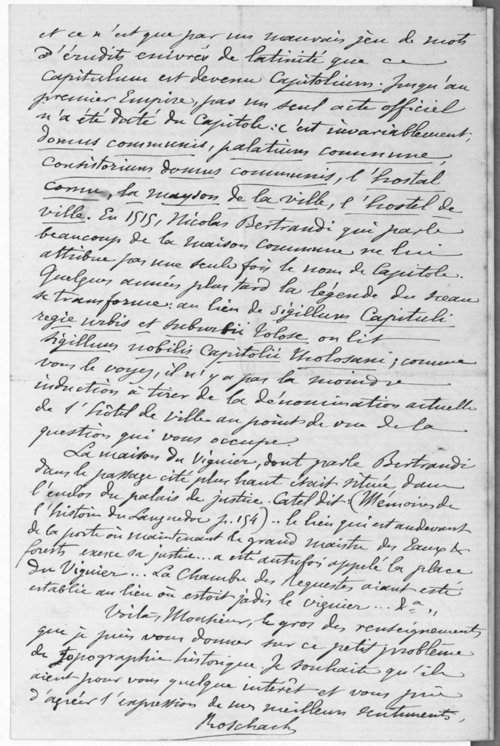 et ce n'est que par un mauvais jeu de mots
d'érudits enivrés de latinité que ce
Capitulum est devenu Capitolium. Jusqu'au
premier Empire, pas un seul acte officiel
n'a été daté du Capitole : c'est invariablement,
domus communis, palatium commune,
Consistorium domus communis, l'hostal
comu, la mayson de la ville, l'hostel de
ville. En 1515, Nicolas Bertrandi qui parle
beaucoup de la maison commune ne lui
attribue pas une seule fois le nom de Capitole.
Quelques années plus tard la légende du sceau
se transforme : au lieu de Sigillum Capituli
regie urbis et suburbii Tolose on lit
Sigillum nobilis Capitolii Tholosani ; comme
vous le voyez, il n'y a pas la moindre
induction à tirer de la dénomination actuelle
de l'hôtel de ville au point de vue de la
question qui vous occupe.
La maison du Viguier, dont parle Bertrandi
dans le passage cité plus haut était située dans
l'enclos du palais de justice. Catel dit (Mémoires de
l'histoire du Languedoc p. 154) .. le lieu qui est au devant
de la porte où maintenant le grand maistre des Eaux &
forests exerce sa justice... a esté autrefois appelé la place
du Viguier... La Chambre des Requestes aiant esté
establie au lieu où estoit jadis le viguier ... &a "
Voilà, Monsieur, le gros des renseignements
que je puis vous donner sur ce petit problème
de topographie historique. Je souhaite qu'ils
aient pour vous quelque intérêt et vous prie
d'agréer l'expression de mes meilleurs sentiments.
Roschach